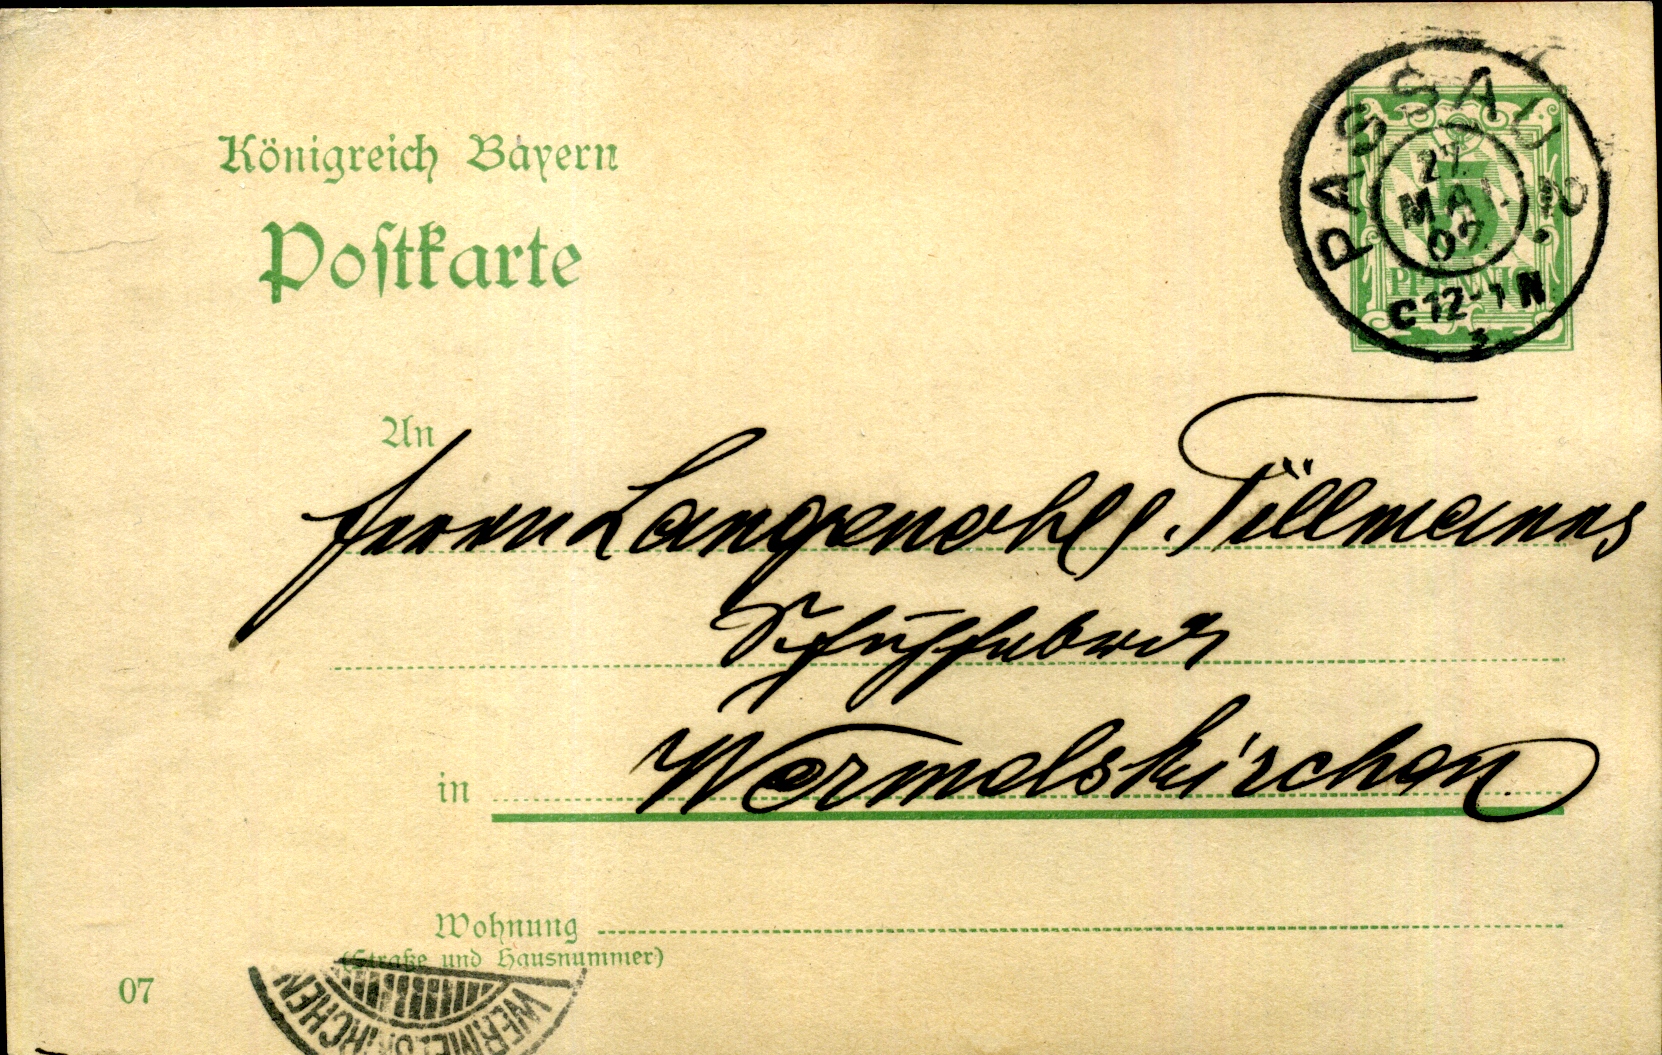 Königreich Bayern
Postkarte
PASSAU 2
27 MAI 07
C 12-1 N
3
5
PFENNIG
An
Herrn Langenohl & Tillmanns
Schuhfabrik
in Wermelskirchen
Wohnung
(Straße und Hausnummer)
07
WERMELSKIRCHEN